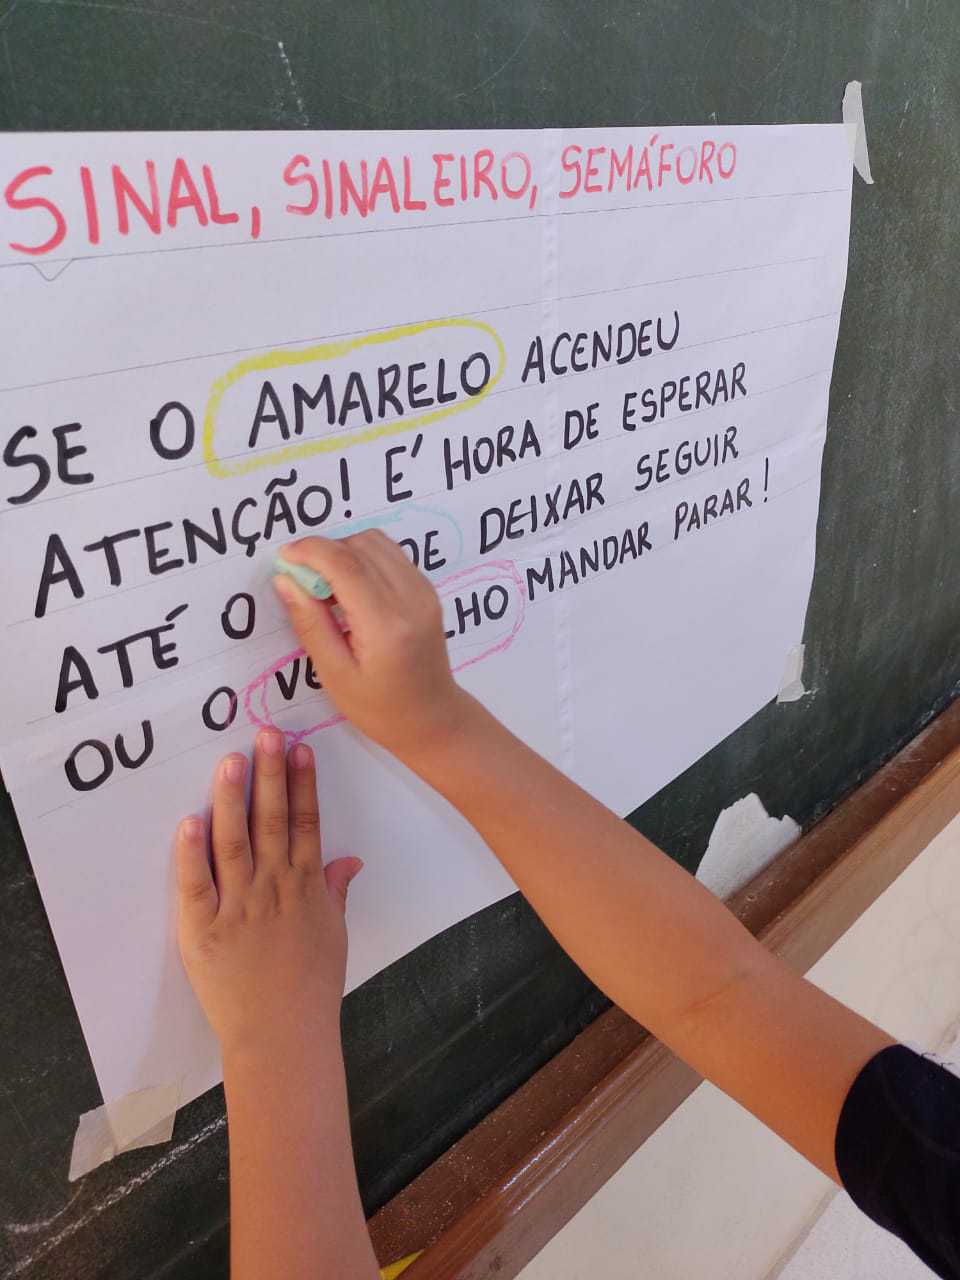 SINAL, SINALEIRO, SEMÁFORO
SE O AMARELO ACENDEU
ATENÇÃO! É HORA DE ESPERAR
ATÉ O DEIXAR SEGUIR
OU O MANDAR PARAR!